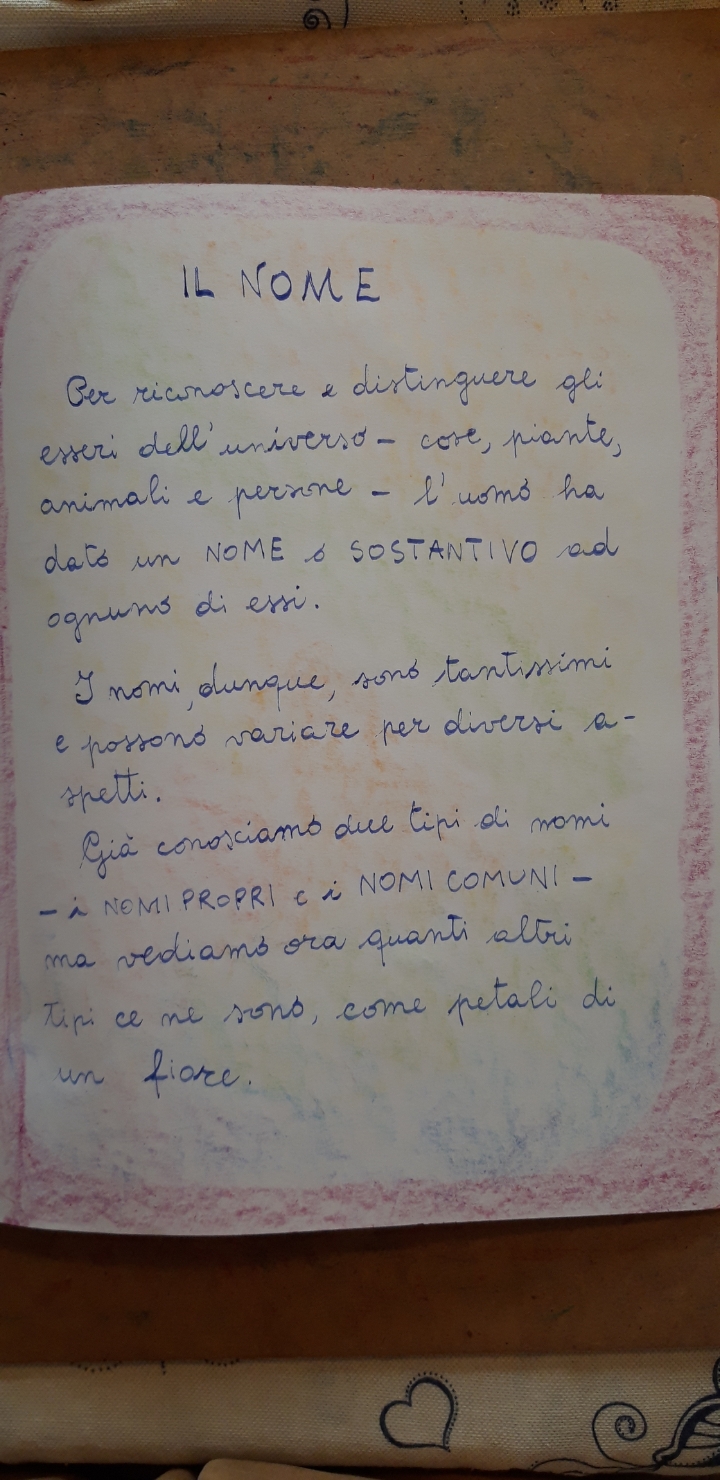 IL NOME
Per riconoscere e distinguere gli
esseri dell'universo - cose, piante,
animali e persone - l'uomo ha
dato un NOME o SOSTANTIVO ad
ognuno di essi.
I nomi, dunque, sono tantissimi
e possono variare per diversi a-
spetti.
Già conosciamo due tipi di nomi
- i NOMI PROPRI e i NOMI COMUNI -
ma vediamo ora quanti altri
tipi ce ne sono, come petali di
un fiore.